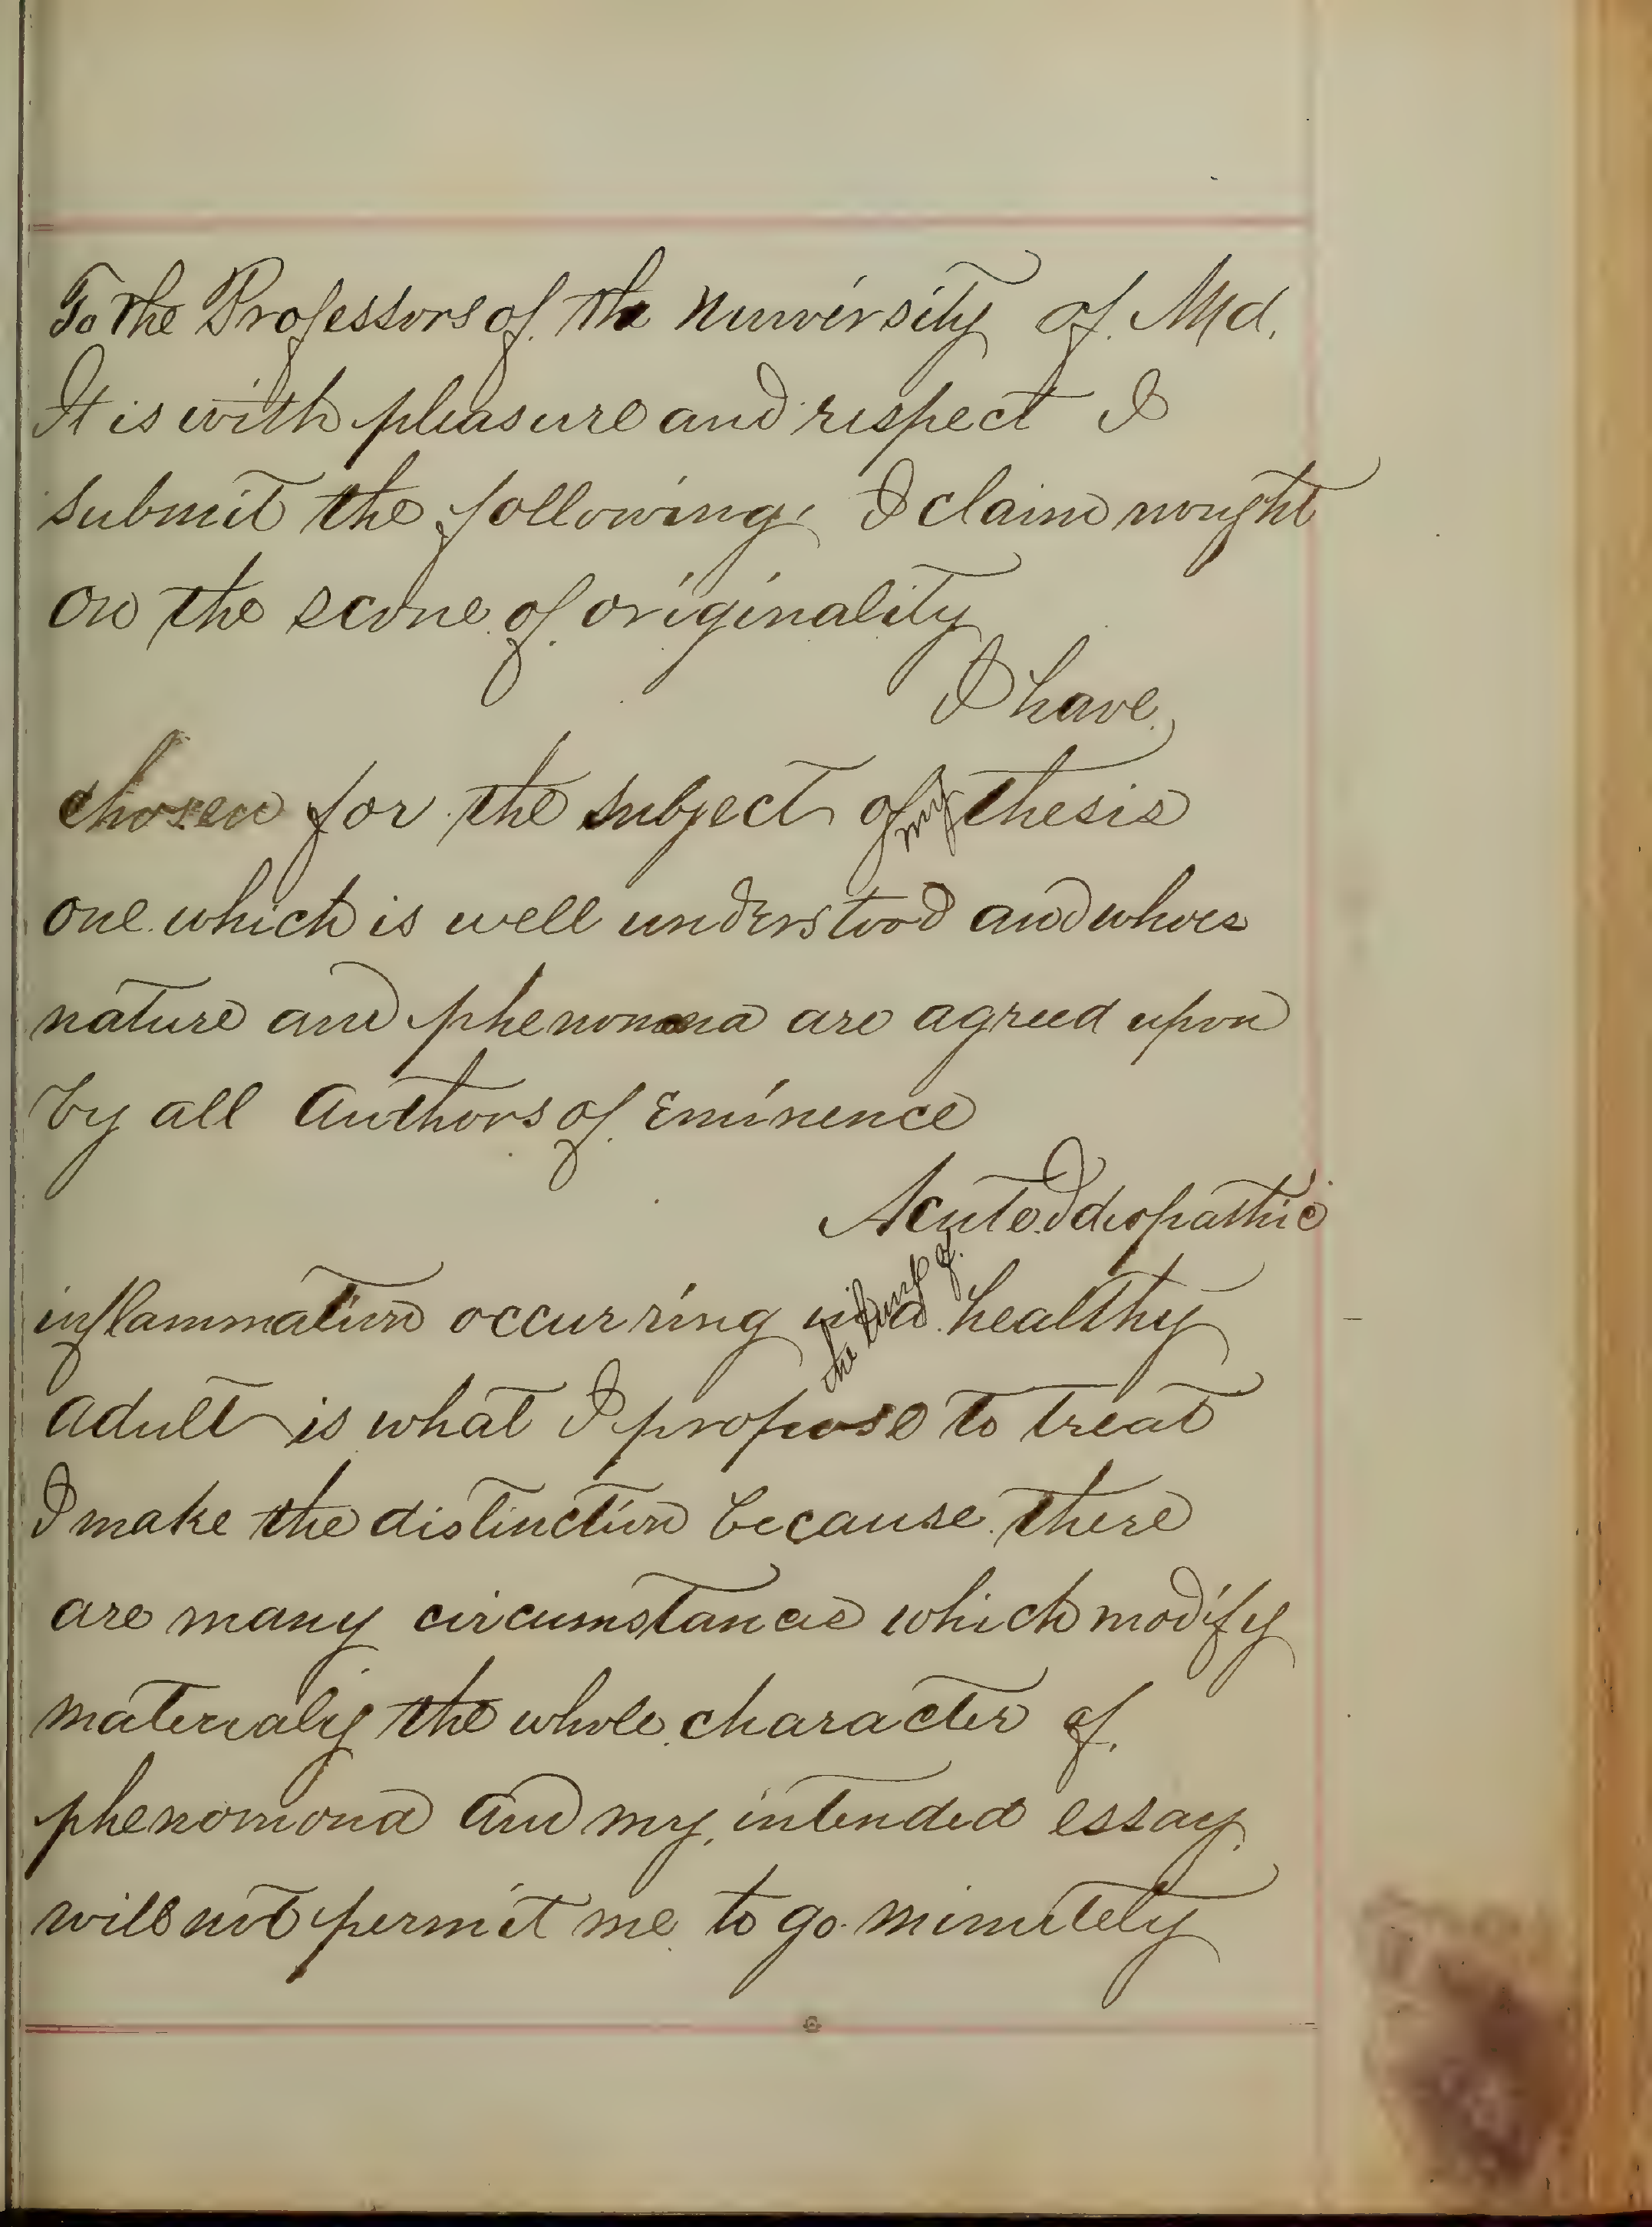 To the Professors of the University of Md.
It is with pleasure and respect I
submit the following. I claim nought
on the score of originality
I have
chosen for the subject of my thesis
one which is well understood and whoes
nature and phenomena are agreed upon
by all Authors of Eminence
Acute Idiopathic
inflammation occurring in the lung of a healthy
adult is what I propose to treat
I make the distinction because there
are many circumstances which modify
materialy the whole character of
phenomona and my intended essay
will not permit me to go minutely